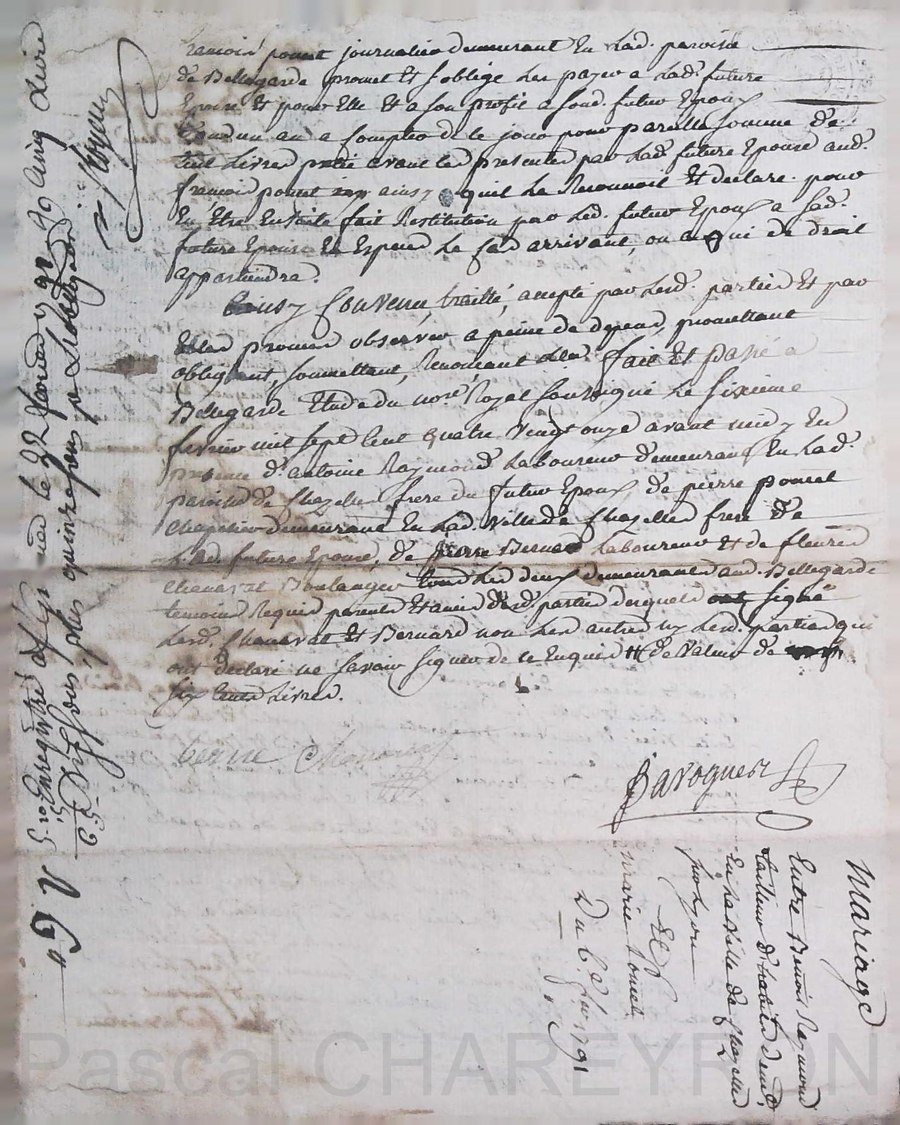 françois poncet journalier demeurant en lad. paroisse
de Bellegarde promet et soblige les payer a lad. future
Epouse et pour Elle et a son profit a sond. futur Epoux
dendun an a compter de ce jour pour pareille somme de
Livres avant les presentes par lad. future Epouse aud.
françois poncet ainsy quil le Reconnoit et declare pour
En Etre Ensuite fait Restitution par led. futur Epoux a sad.
future Epouse En Espece le cas arrivant, ou a qui de droit
appartiendra.
Convenu, traitté, accepté par lesd. parties et par
Elles promis observer a peine de depens, promettant
obligeant, soumettant, Renonceant &a. fait et passé a
Bellegarde Etude du nore. Royal soussigné le sixieme
fevrier mil sept Cent quatre vingt onze avant midy En
presence d'antoine Raymond Laboureur demeurant En lad.
paroisse de Chazelles frere du futur Epoux, de pierre poncet
chapelier demeurant En lad. ville de Chazelles frere de
Lad. future Epouse, de pierre Bernard Laboureur et de fleury
chanavat Boulanger tous les deux demeurants aud. Bellegarde
temoins Requis parents et amis desd. parties desquels ont signé
lesd. Chanavat et Bernard non les autres ny lesd. parties qui
ont declaré ne savoir signer de ce Enquis de valeur de
six Cents Livres.
Chanavat
Mariage
Entre Benoit Raymond
tailleur d'habits demt.
En la ville de Chazelles
sur Lyon
Et
marie poncet
Du 6e. fev. 1791
Enregistré le 22
dix sous, plus quinze sous
Pascal CHAREYRON